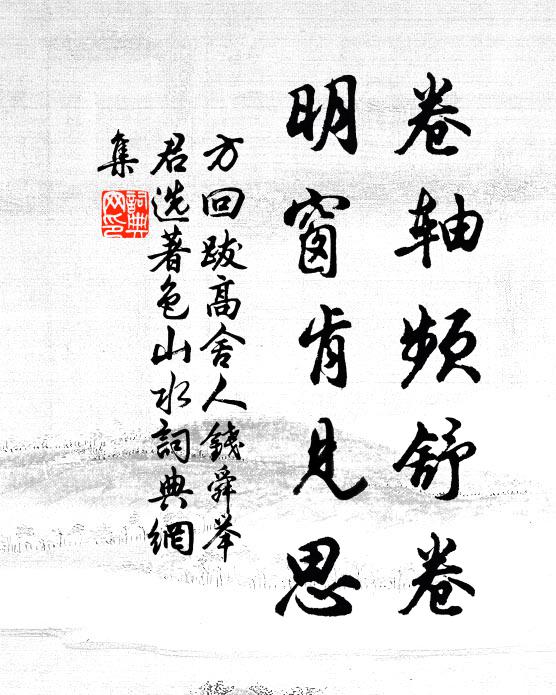 卷軸頻舒卷
明窗肯見思
方回跋高舍人錢舜举
君选著色山水詞典網
集
詞典网印